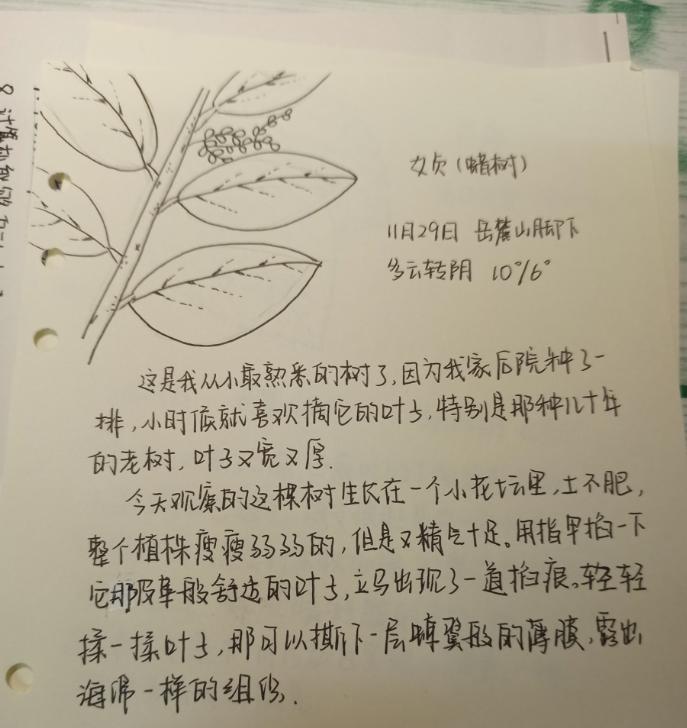 女贞（蜡树）
11月29日 岳麓山脚下
多云转阴 10°/6°
这是我从小最熟悉的树了，因为我家后院种了一
排，小时候就喜欢摘它的叶子，特别是那种几十年
的老树，叶子又宽又厚.
今天观察的这棵树生长在一个小花坛里，土不肥，
整个植株瘦瘦弱弱的，但是又精气十足。用指甲掐一下
它那皮革般舒适的叶子，立马出现了一道掐痕。轻轻
揉一揉叶子，那可以撕下一层蝉翼般的薄膜，露出
海绵一样的组织.